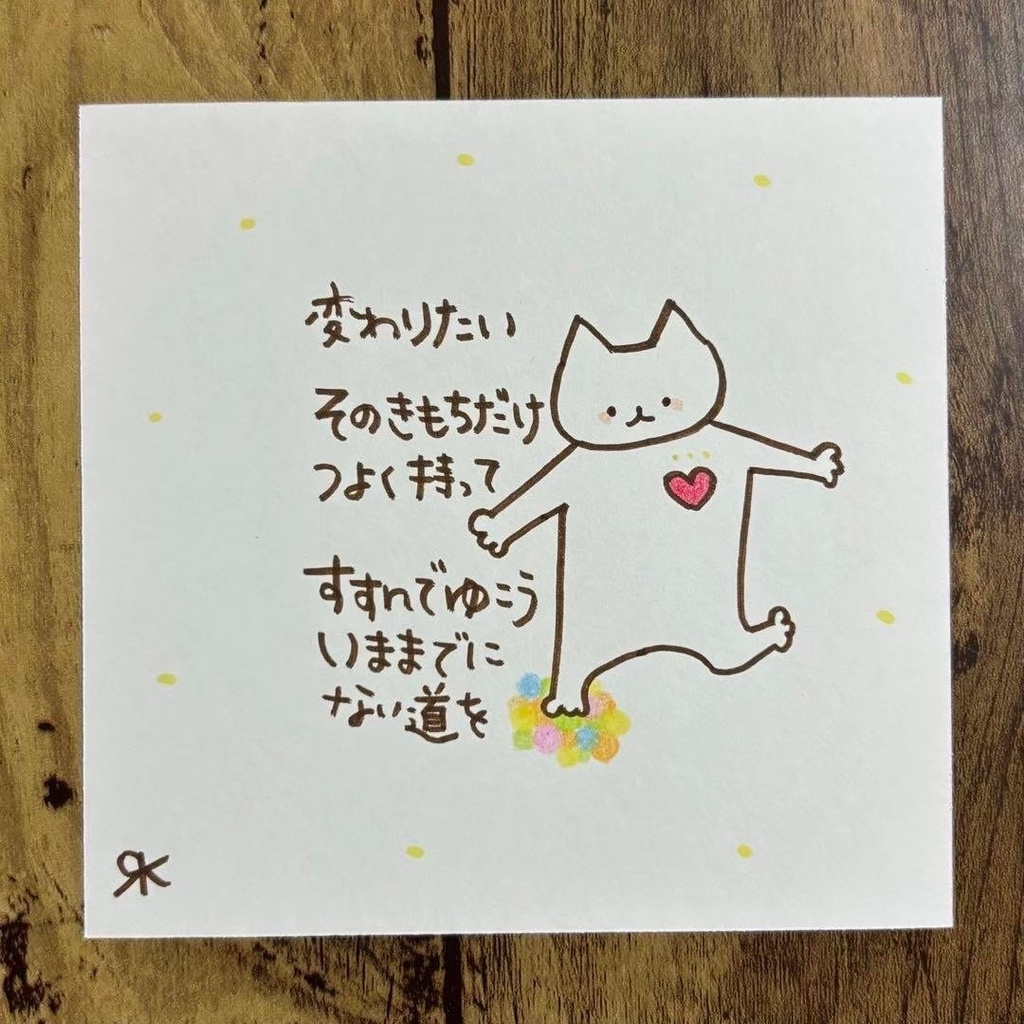 変わりたい
そのきもちだけ
つよく持って
すすんでゆこう
いままでに
ない道を
RK